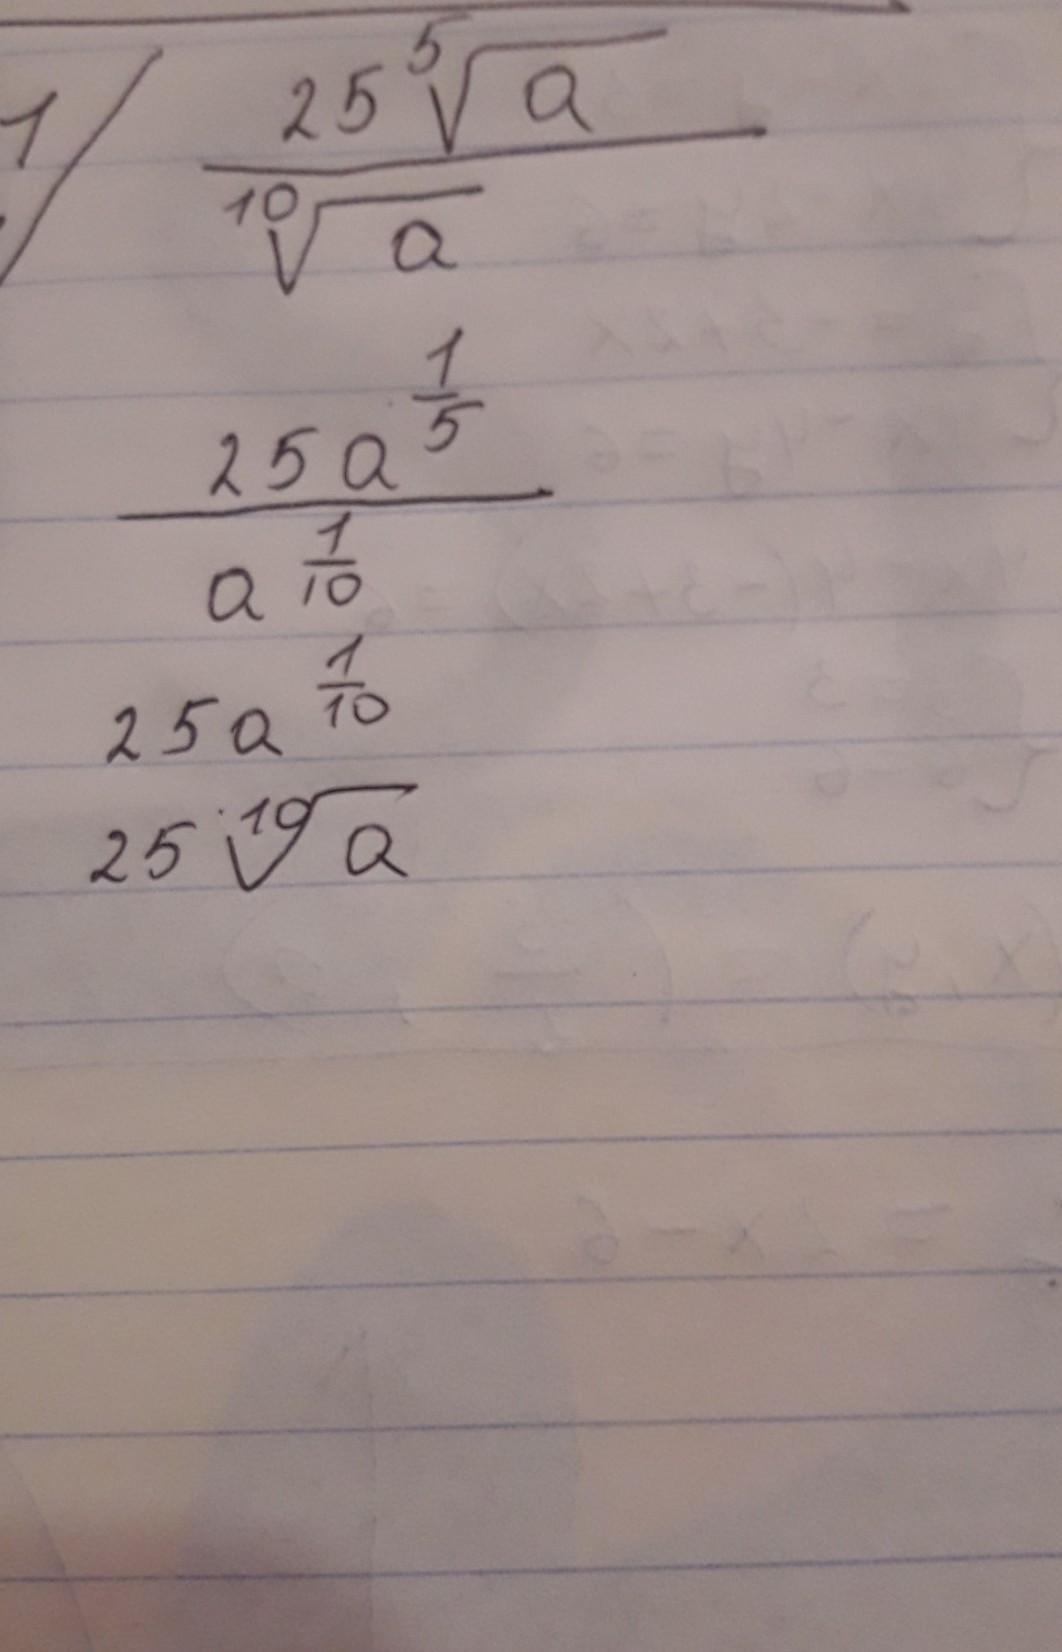 1/ 25 ⁵√a
¹⁰√a
25a^(1/5)
a^(1/10)
25a^(1/10)
25 ¹⁰√a